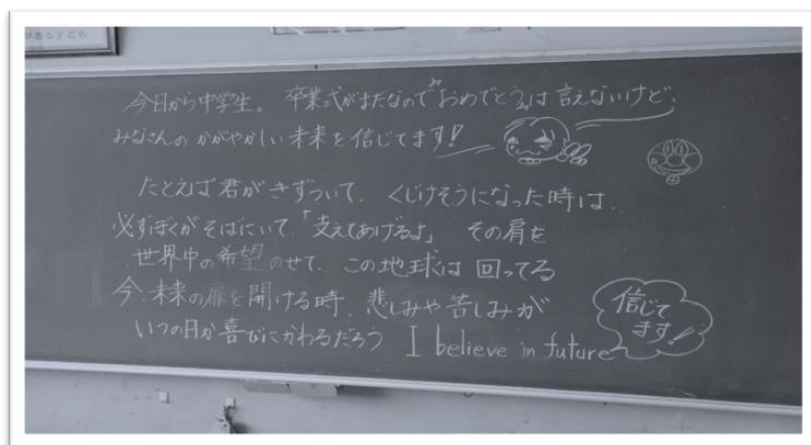 がある子ども
今日から中学生。卒業式がまだなので"おめでとう"は言えないけど、
みなさんのかがやかしい未来を信じてます!
たとえば君がきずついて、くじけそうになった時は、
必ずぼくがそばにいて、「支えてあげるよ」その肩を
世界中の希望のせて、この地球は回ってる
今、未来の扉を開ける時、悲しみや苦しみが
いつの日か喜びにかわるだろう I believe in future
信じて
ます!